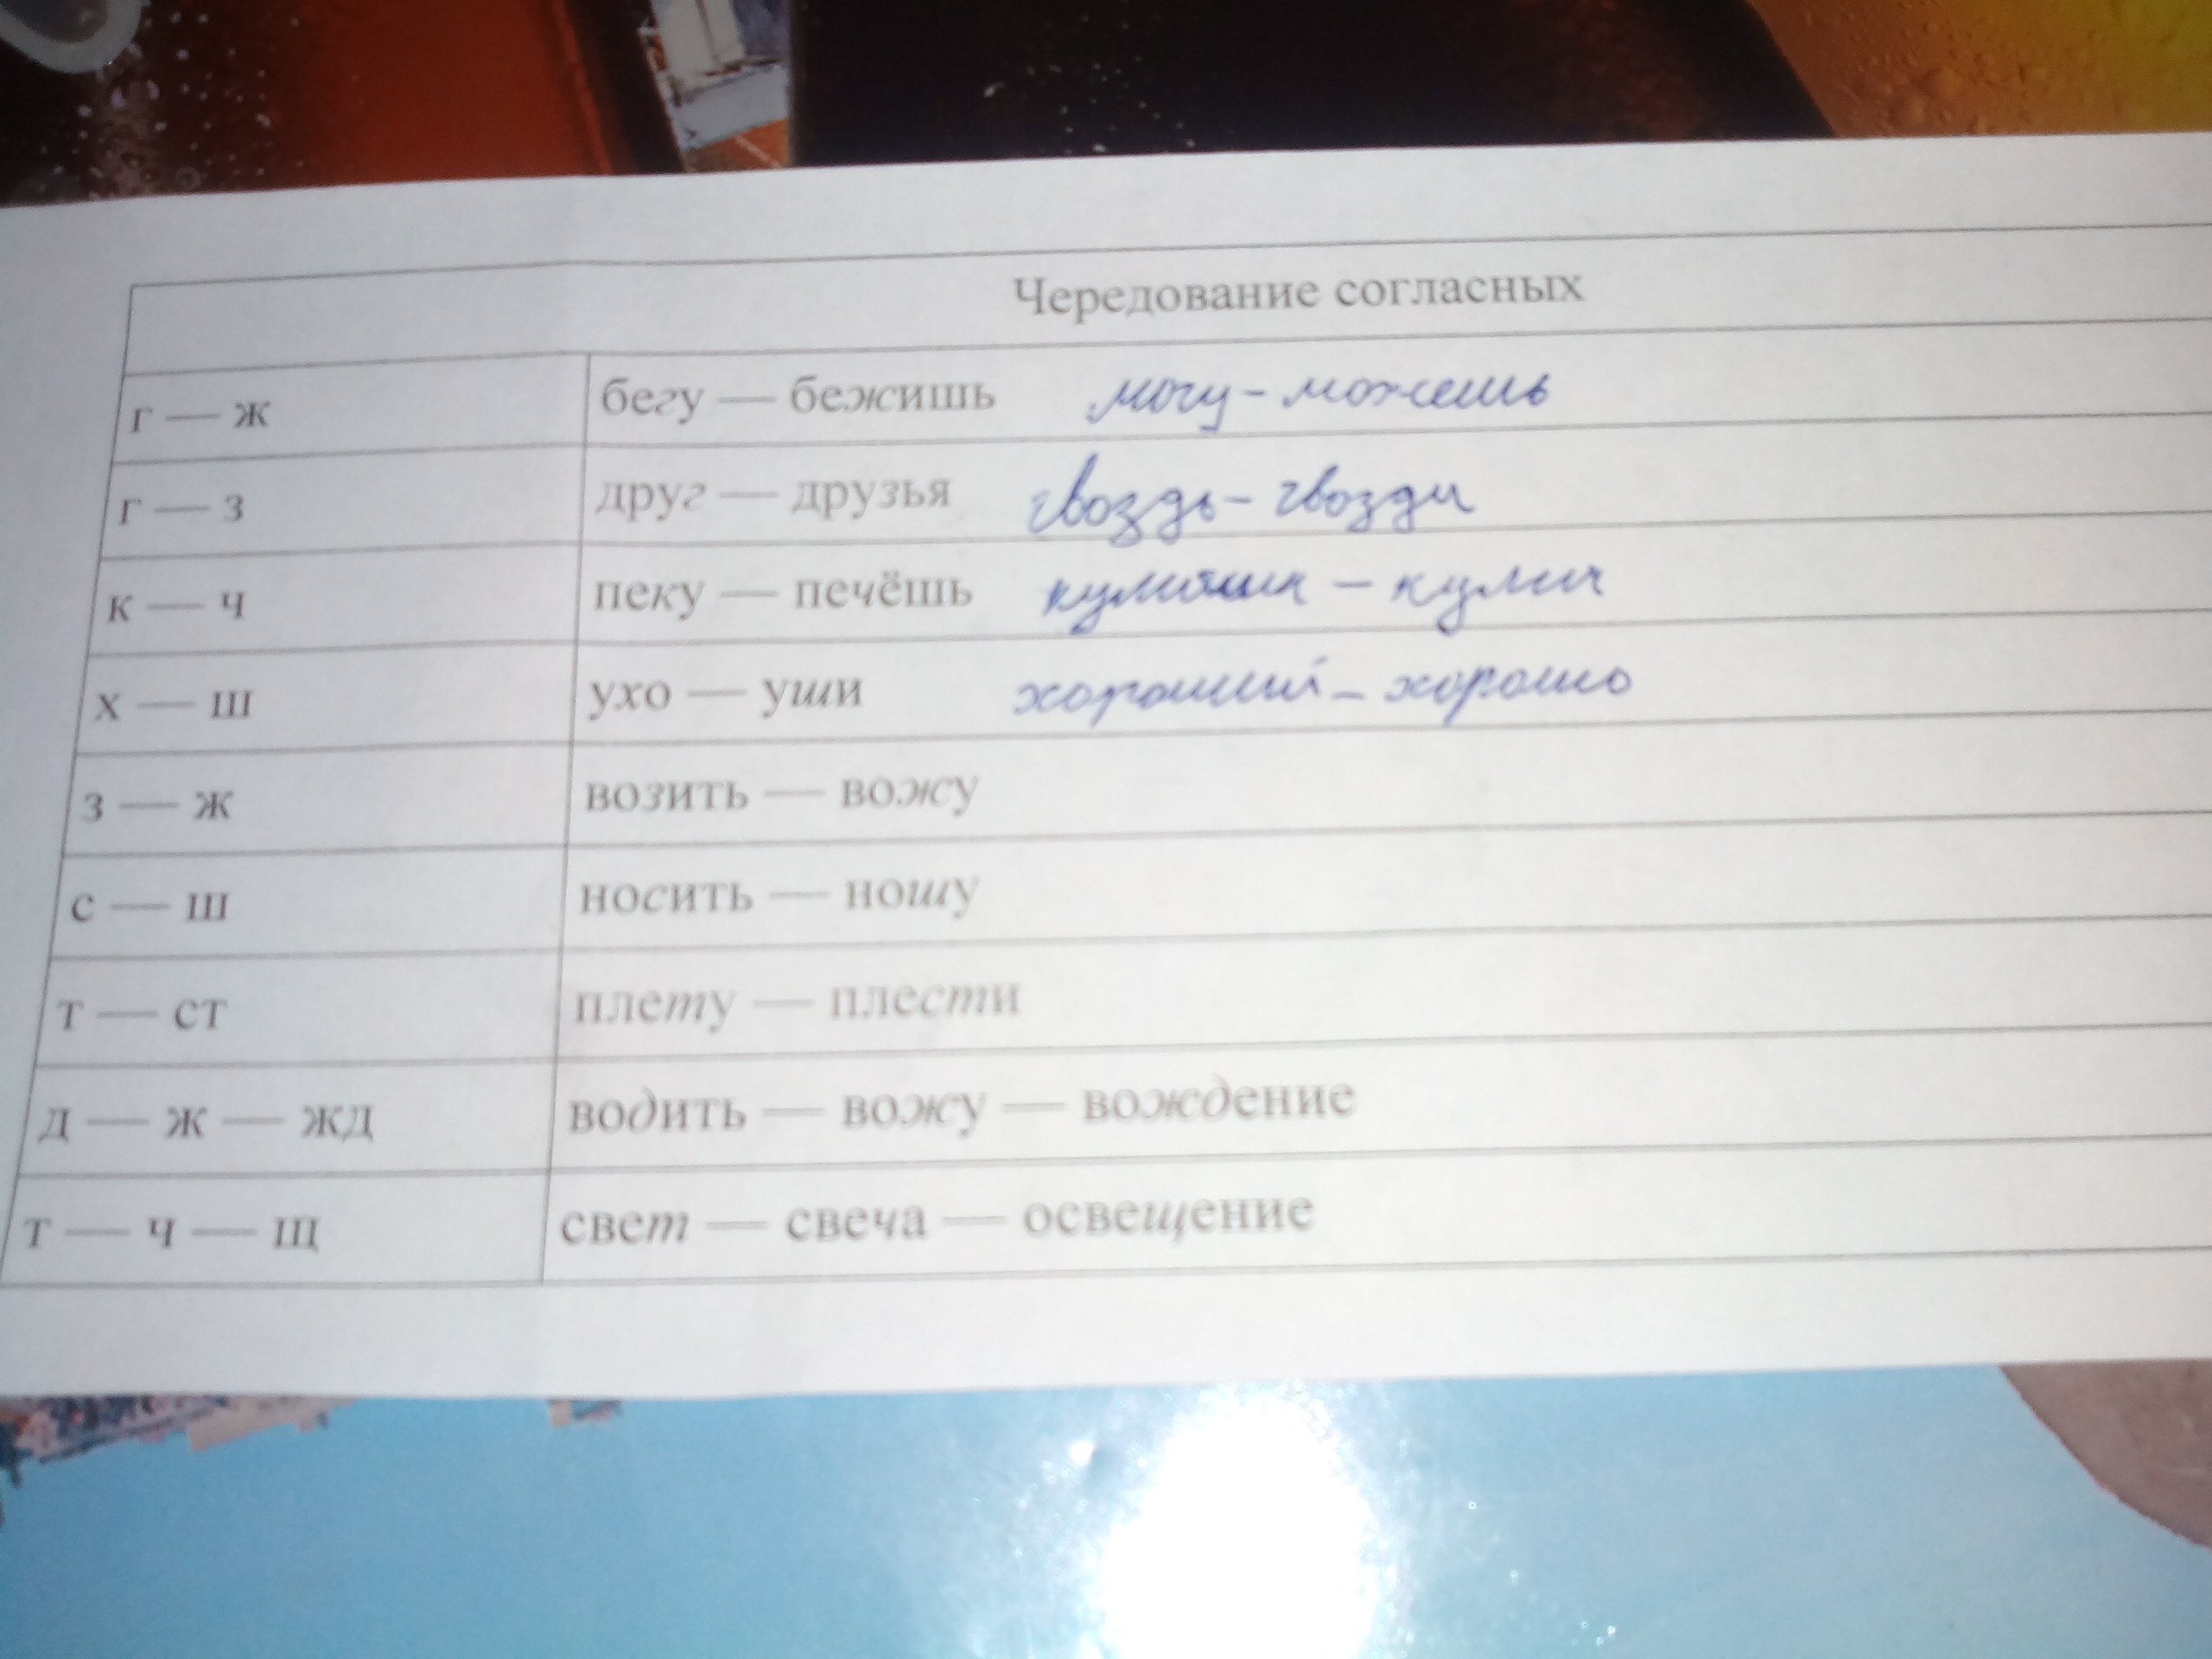 Чередование согласных
г — ж бегу — бежишь могу - можешь
г — з друг — друзья гвоздь - гвозди
к — ч пеку — печёшь — кулич
х — ш ухо — уши хороший - хорошо
з — ж возить — вожу
с — ш носить — ношу
т — ст плету — плести
д — ж — жд водить — вожу — вождение
т — ч — щ свет — свеча — освещение